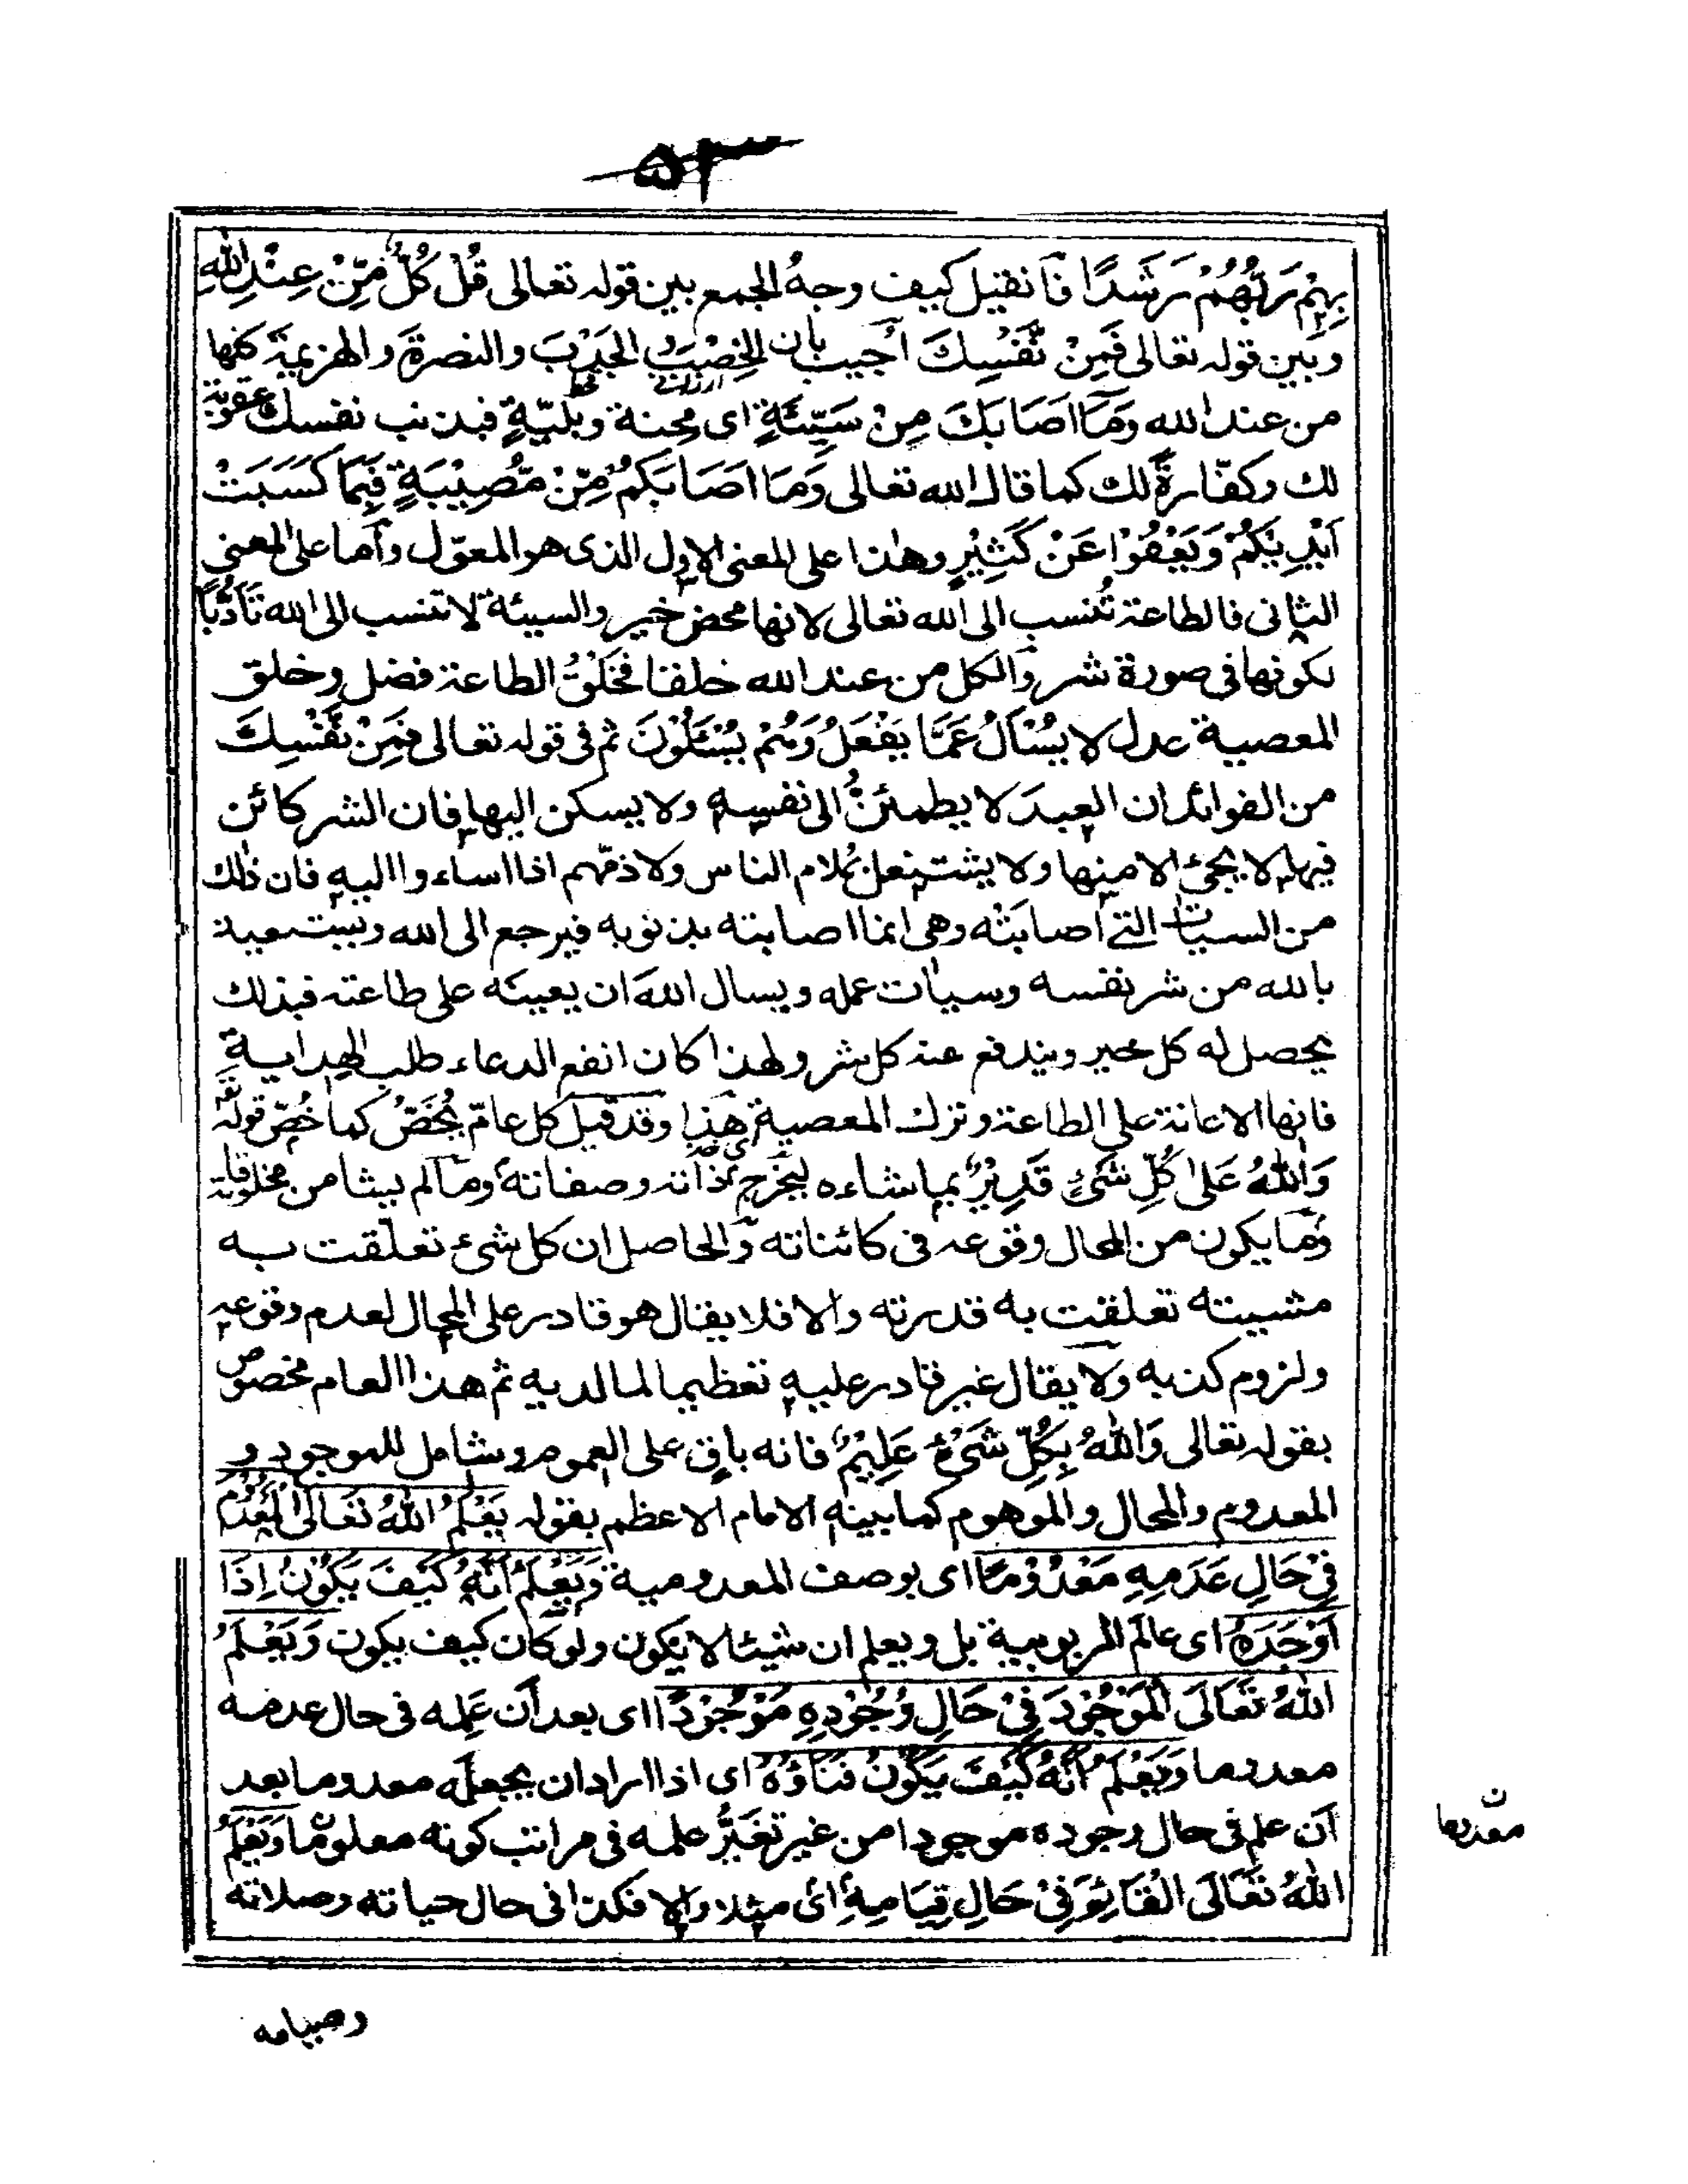 ۵۳
بِهِمْ رَبُّهُمْ رَشَدًا فان قيل كيف وجهُ الجمع بين قوله تعالى قُلْ كُلٌّ مِّنْ عِنْدِ اللهِ
وبين قوله تعالى فَمِنْ نَّفْسِكَ اُجيب بان الخِصْبَ والجَدْبَ والنصرة والهزيمة كلها
ارزانى قحط
من عند الله وَمَا اَصَابَكَ مِنْ سَيِّئَةٍ اى محنة وبليّةٍ فبذنب نفسك عقوبة
لك وكفّارةً لك كما قال الله تعالى وَمَا اَصَابَكُمْ مِّنْ مُّصِيْبَةٍ فَبِمَا كَسَبَتْ
اَيْدِيْكُمْ وَيَعْفُوْا عَنْ كَثِيْرٍ وهٰذا على المعنى الاول الذى هو المعوّل واما على المعنى
الثانى فالطاعة تُنسب الى الله تعالى لانها محض خير والسيئة لا تنسب الى الله تَأَدُّبًا
لكونها فى صورة شر والكل من عند الله خلقا فخَلْقُ الطاعة فضل وخلق
المعصية عدل لا يُسْاَلُ عَمَّا يَفْعَلُ وَهُمْ يُسْئَلُوْنَ ثم فى قوله تعالى فَمِنْ نَّفْسِكَ
من الفوائد ان العبدَ لا يطمئنُّ الى نفسه ولا يسكن اليها فان الشر كائن
فيها لا يجئ الا منها ولا يشتغل بملام الناس ولا ذمّهم اذا اساءوا اليه فان ذٰلك
من السيات التى اصابتْه وهى انما اصابته بذنوبه فيرجع الى الله ويستعيذ
بالله من شر نفسه وسيات عمله ويسال اللهَ ان يعينه على طاعته فبذلك
يحصل له كل خير ويندفع عنه كل شر ولهذا كان انفع الدعاء طلب الهدايةِ
فانها الاعانة على الطاعة وترك المعصية هٰذا وقد قيل كل عامّ يُخَصُّ كما خُصّ قوله تع
وَاللهُ عَلىٰ كُلِّ شَىْءٍ قَدِيْرٌ بما شاءه ليخرج ذاته وصفاته وما لم يشا من مخلوقاته
وما يكون من المحال وقوعه فى كائناته والحاصل ان كل شىء تعلّقت به
مشيته تعلقت به قدرته والا فلا يقال هو قادر على المحال لعدم وقوعه
ولزوم كذبه ولا يقال غير قادر عليه تعظيما لما لديه ثم هذا العام مخصوص
بقوله تعالى وَاللهُ بِكُلِّ شَىْءٍ عَلِيْمٌ فانه باق على العموم وشامل للموجود و
المعدوم والمحال والموهوم كما بينه الامام الاعظم بقوله يَعْلَمُ اللهُ تَعَالَى الْمَعْدُوْمَ
فِىْ حَالِ عَدَمِهٖ مَعْدُوْمًا اى بوصف المعدومية وَيَعْلَمُ اَنَّهٗ كَيْفَ يَكُوْنُ اِذَا
اَوْجَدَهٗ اى عالم المربوبية بل ويعلم ان شيئا لا يكون ولو كان كيف يكون وَيَعْلَمُ
اللهُ تَعَالَى الْمَوْجُوْدَ فِىْ حَالِ وُجُوْدِهٖ مَوْجُوْدًا اى بعد ان عَلِمه فى حال عدمه
معدوما وَيَعْلَمُ اَنَّهٗ كَيْفَ يَكُوْنُ فَنَاؤُهٗ اى اذا اراد ان يجعله معدوما بعد
ان علم فى حال وجوده موجودا من غير تَغَيُّر علمه فى مراتب كونه معلوما وَيَعْلَمُ
اللهُ تَعَالَى الْقَائِمَ فِىْ حَالِ قِيَامِهٖ اى مثلا والا فكذا فى حال حياته وصلاته
وصيامه